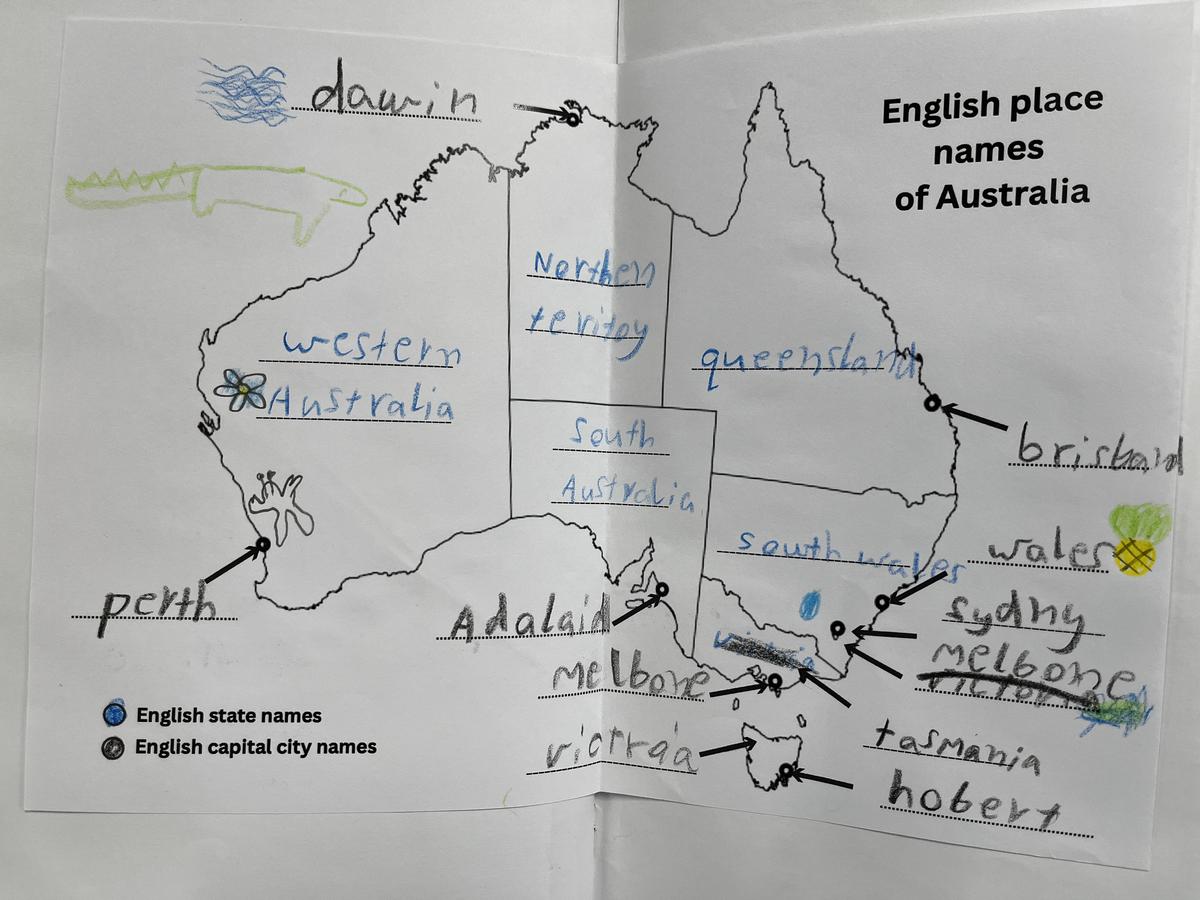 dawin
English place
names
of Australia
Northen
teritoy
western
Australia
queensland
South
Australia
brisband
south wales
wales
perth
Adalaid
sydny
victria
melbone
melbone
English state names
English capital city names
victria
tasmania
hobert